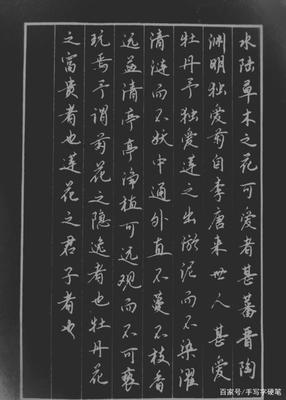 水陆草木之花可爱者甚蕃晋陶
渊明独爱菊自李唐来世人甚爱
牡丹予独爱莲之出淤泥而不染濯
清涟而不妖中通外直不蔓不枝香
远益清亭亭净植可远观而不可亵
玩焉予谓菊花之隐逸者也牡丹花
之富贵者也莲花之君子者也
百家号/手写字硬笔